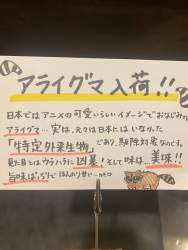 アライグマ入荷!!
日本ではアニメの可愛いらしいイメージでおなじみの
アライグマ…実は、元々は日本にはいなかった
「特定外来生物」であり、駆除対象なんです。
見た目とはウラハラに凶暴!そして味は、美味!!
旨味ばっちりでほんのり甘い